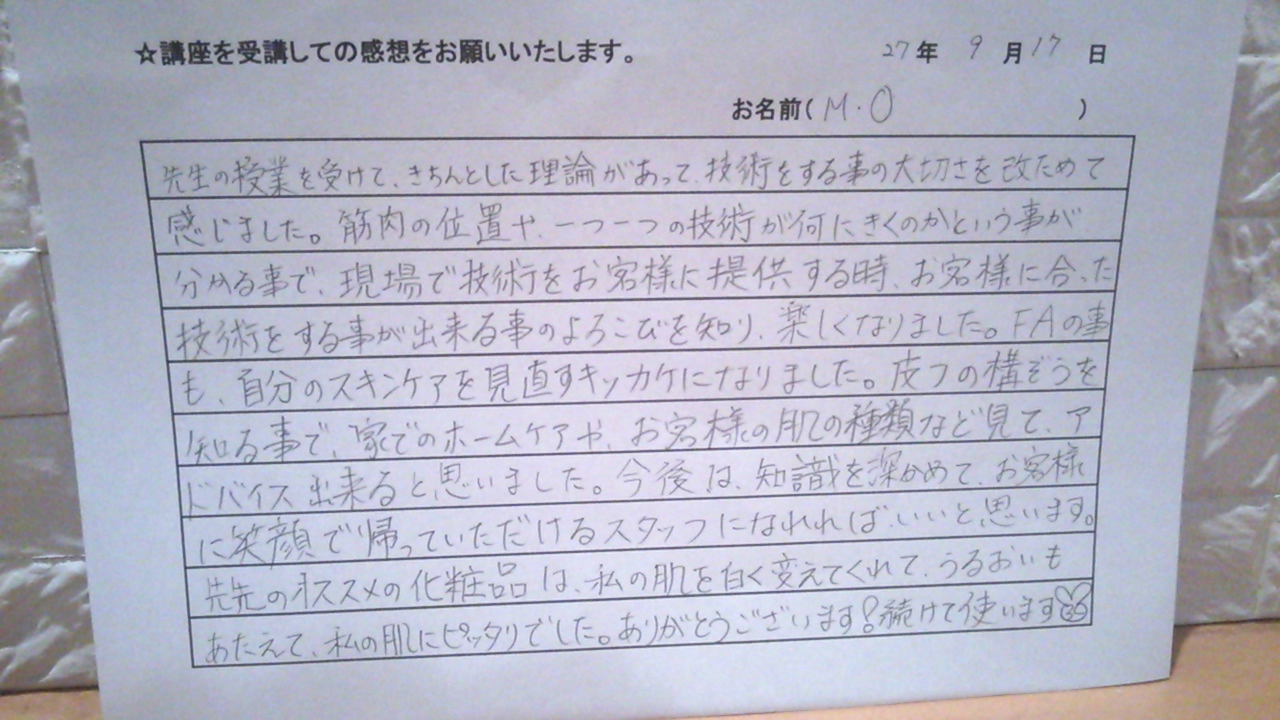 ☆講座を受講しての感想をお願いいたします。 27年 9月17日
お名前(M.O)
先生の授業を受けて、きちんとした理論があって、技術をする事の大切さを改ためて
感じました。筋肉の位置や、一つ一つの技術が何にきくのかという事が
分かる事で、現場で技術をお客様に提供する時、お客様に合った
技術をする事が出来る事のよろこびを知り、楽しくなりました。FAの事
も、自分のスキンケアを見直すキッカケになりました。皮フの構ぞうを
知る事で、家でのホームケアや、お客様の肌の種類など見て、ア
ドバイス出来ると思いました。今後は、知識を深かめて、お客様
に笑顔で帰っていただけるスタッフになれればいいと思います。
先先のオススメの化粧品は、私の肌を白く変えてくれて、うるおいも
あたえて、私の肌にピッタリでした。ありがとうございます!続けて使います